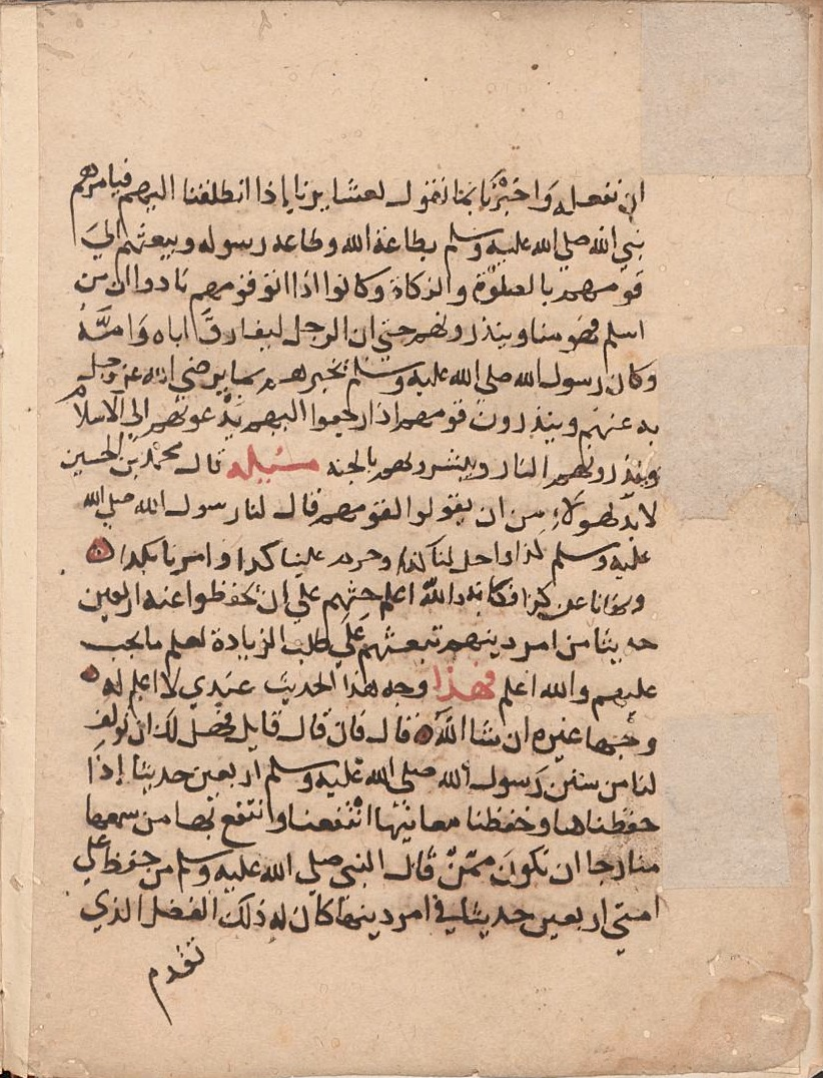 ان نفعله واخبرنا بما نقول لعشايرنا اذا انطلقنا اليهم فيامرهم
نبي الله صلي الله عليه وسلم بطاعة الله وطاعه رسوله ويبعثهم الي
قومهم بالصلوة والزكاة وكانوا اذا اتوا قومهم نادوا ان من
اسلم فهو منا وينذرونهم حتي ان الرجل ليفارق اباه وامه
وكان رسول الله صلي الله عليه وسلم يخبرهم بما يرضي الله عز وجل
به عنهم وينذرون قومهم اذا رجعوا اليهم يدعونهم الي الاسلام
وينذرونهم النار ويبشرونهم بالجنه مسئله قال محمد بن الحسين
لابد لهولاء من ان يقولوا لقومهم قال لنا رسول الله صلي الله
عليه وسلم كذا واحل لنا كذا وحرم علينا كذا وامرنا بكذا
ونهانا عن كذا فكانه والله اعلم حثهم علي ان يحفظوا عنه اربعين
حديثا من امر دينهم تبعثهم علي طلب الزيادة لعلم ما يجب
عليهم والله اعلم فهذا وجه هذا الحديث عندي لا اعلم له
وجها غيره ان شا الله قال فان قال قايل فحصل لك ان تولف
لنا من سنن رسول الله صلي الله عليه وسلم اربعين حديثا إذا
حفظناها وحفظنا معانيها انتفعنا وانتفع بها من سمعها
منا رجا ان نكون ممن قال النبي صلي الله عليه وسلم من حفظ علي
امتي اربعين حديثا في امر دينها كان له ذلك الفضل الذي
تقدم